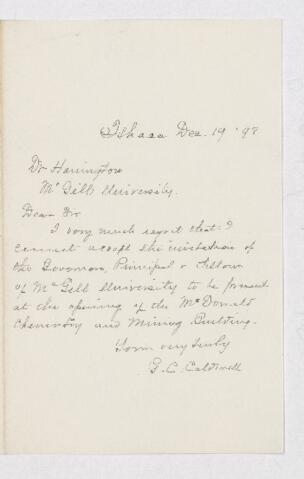 Ithaca Dec. 19 '98
Dr Harrington
McGill University.
Dear Sir
I very much regret that I
cannot accept the invitation of
the Governors, Principal & Fellows
of McGill University to be present
at the opening of the McDonald
Chemistry and Mining Building.
Yours very truly
G. C. Caldwell